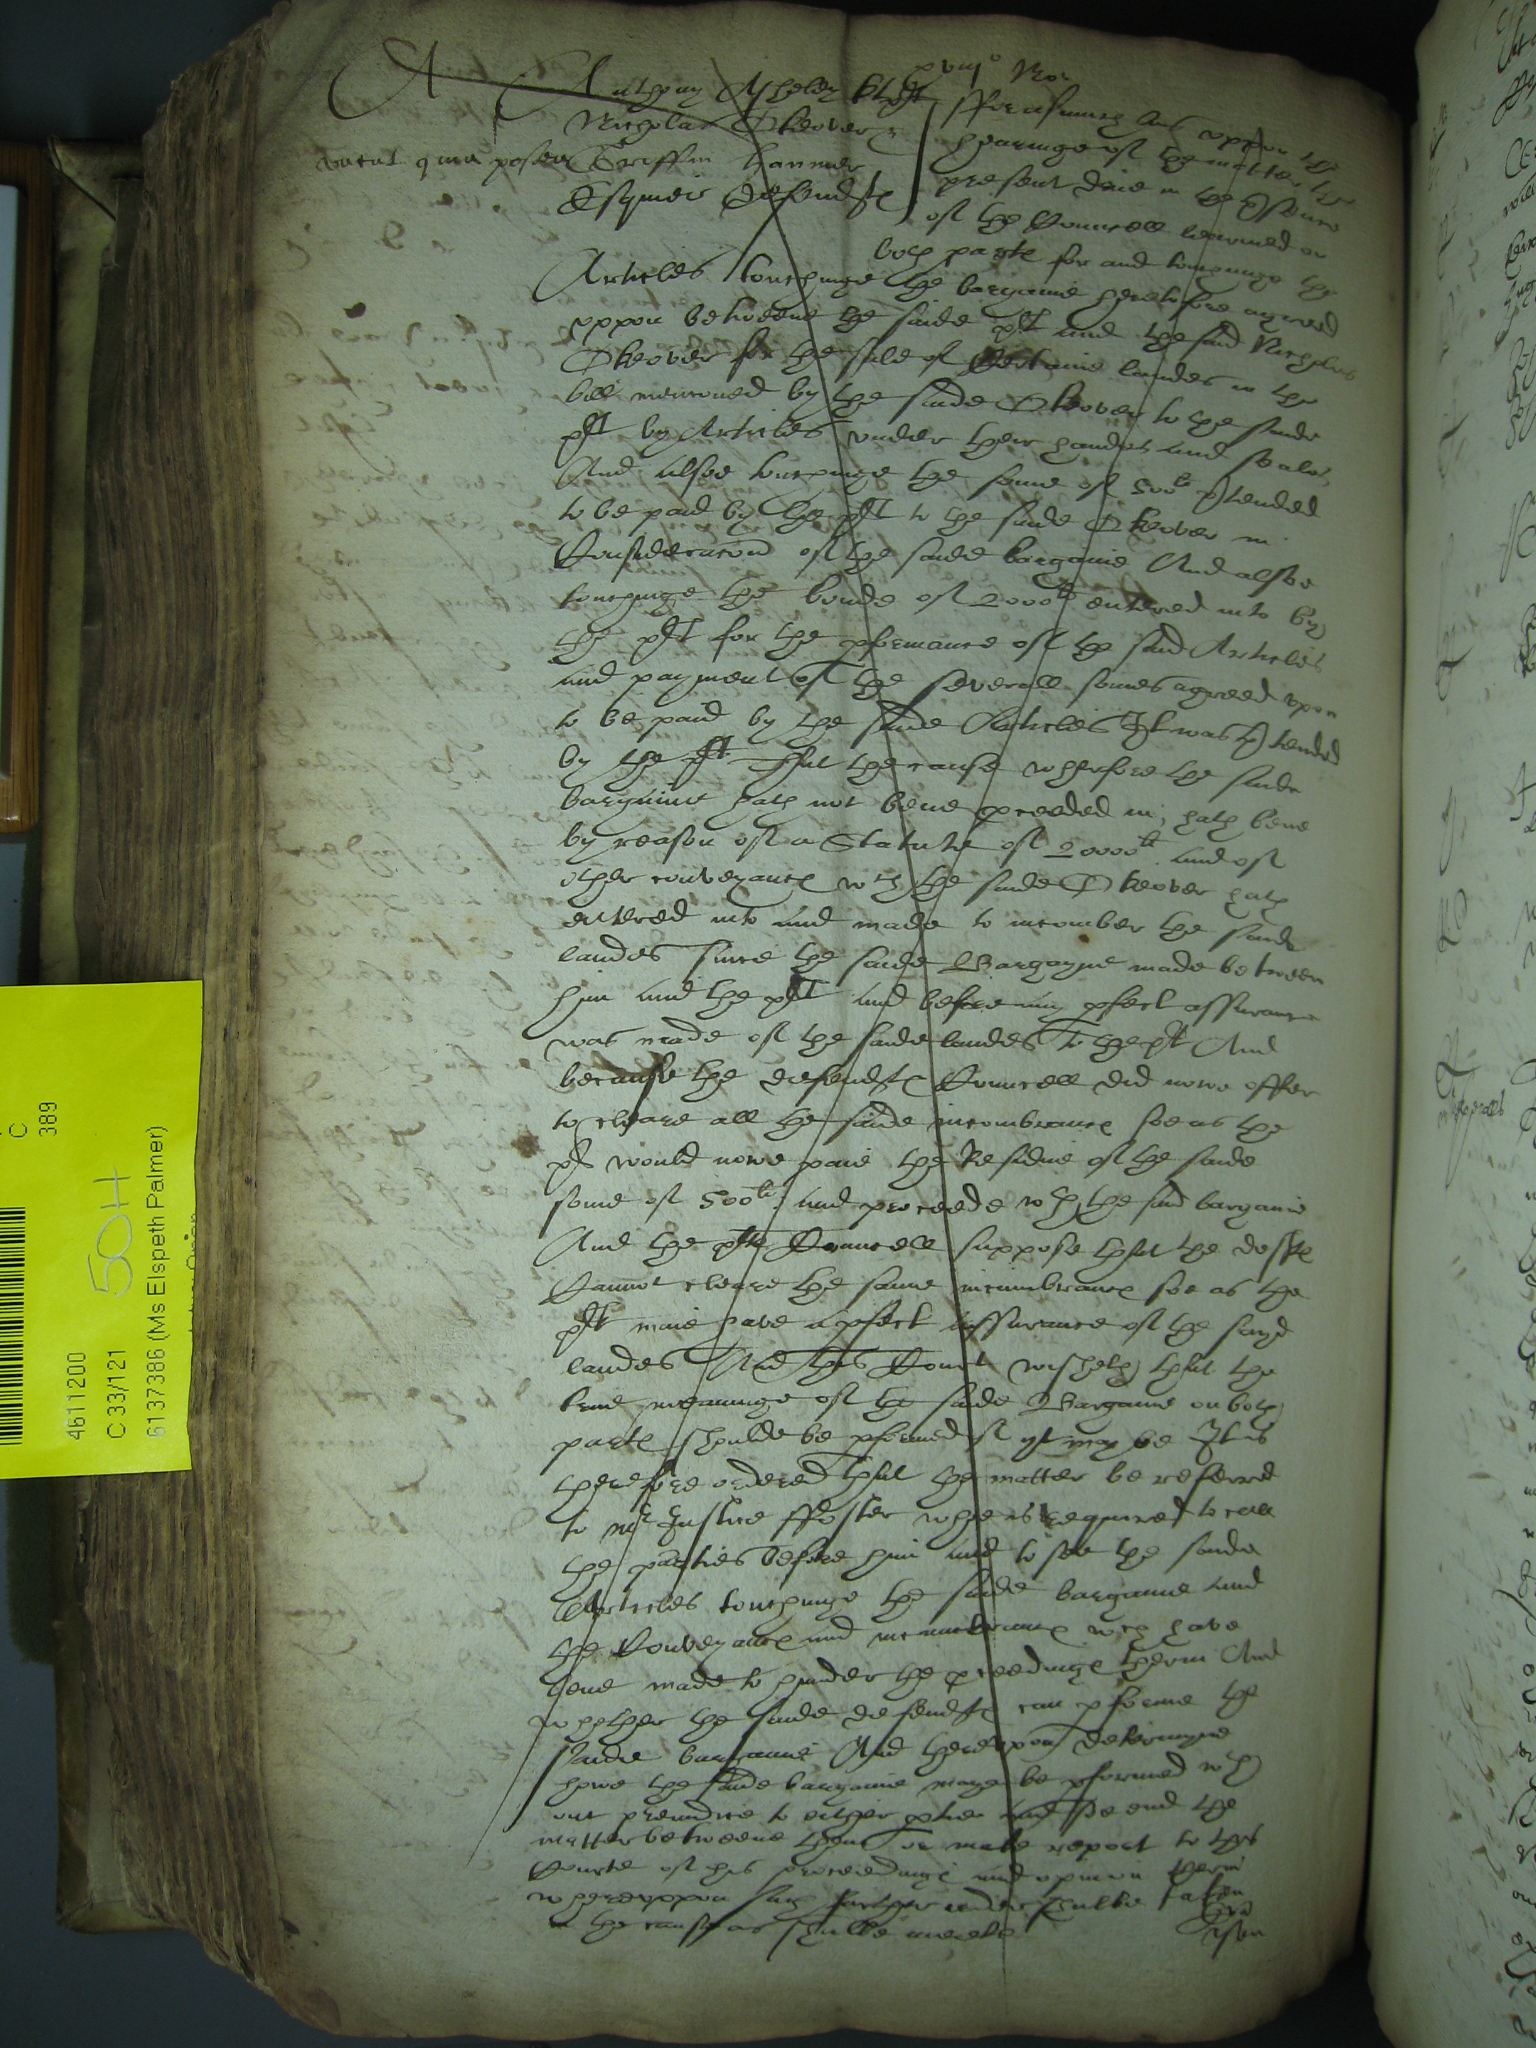 xviijo Nov
A
Anthony Asheley kt plt
Nicholas Okeover &
vacat quia postea Griffin
Esquier defendtes
fforasmuch as uppon the
hearinge of the matter this
present daie in the presence
of the Councell learned on
both partes for and touchinge the
Articles touchinge the bargaine heretofore agreed
uppon betweene the saide plt and the said Nicholas
Okeover for the sale of Certaine landes in the
bill mencioned by the saide Okeover to the saide
plt by Articles under their handes and seales
And alsoe touchinge the some of 500li ptended
to be paid by the plt to the saide Okeover in
Consideracon of the saide bargaine And alsoe
touchinge the bonde of 2000li entered into by
the plt for the pformance of the said Articles
and payment of the severall somes agreed upon
to be paid by the saide Articles It was ptended
by the plt that the cause wherfore the saide
bargaine hath not bene pceeded in, hath bene
by reason of a Statute of 20000li and of
other conveyances wch the saide Okeover hath
entered into and made to incomber the saide
landes since the saide Bargayne made between
him and the plt and before any pfect assurance
was made of the saide landes to the plt And
because the defendtes Councell did nowe offer
to cleare all the saide incombrances soe as the
plt would nowe paie the Residue of the saide
some of 500li. and proceede wth the said bargaine
And the pltes Councell suppose that the deftes
Cannot cleare the same incumbrances soe as the
plt maie have a pfect assurance of the sayd
landes And this Court wisheth that the
true meaninge of the saide Bargaine on both
partes shoulde be pformed if yt may be It is
therefore ordered that the matter be referred
to mr Justice ffoster whoe is required to call
the parties before him and to see the saide
Articles touchinge the saide bargaine and
the Conveyances and incumbrances wch have
bene made to hinder the pceedinges therin And
whether the saide defendtes can pforme the
saide bargaine And thereupon determyne
howe the saide bargaine maye be pformed wth
out preiudice to either ptie and soe end the
matter betweene them or make report to this
Courte of his proceedinges and opinion therin
whereuppon such further order shalbe taken
in the cause as shalbe meete
C
389
50H
4611200
C 33/121
6137386 (Ms Elspeth Palmer)